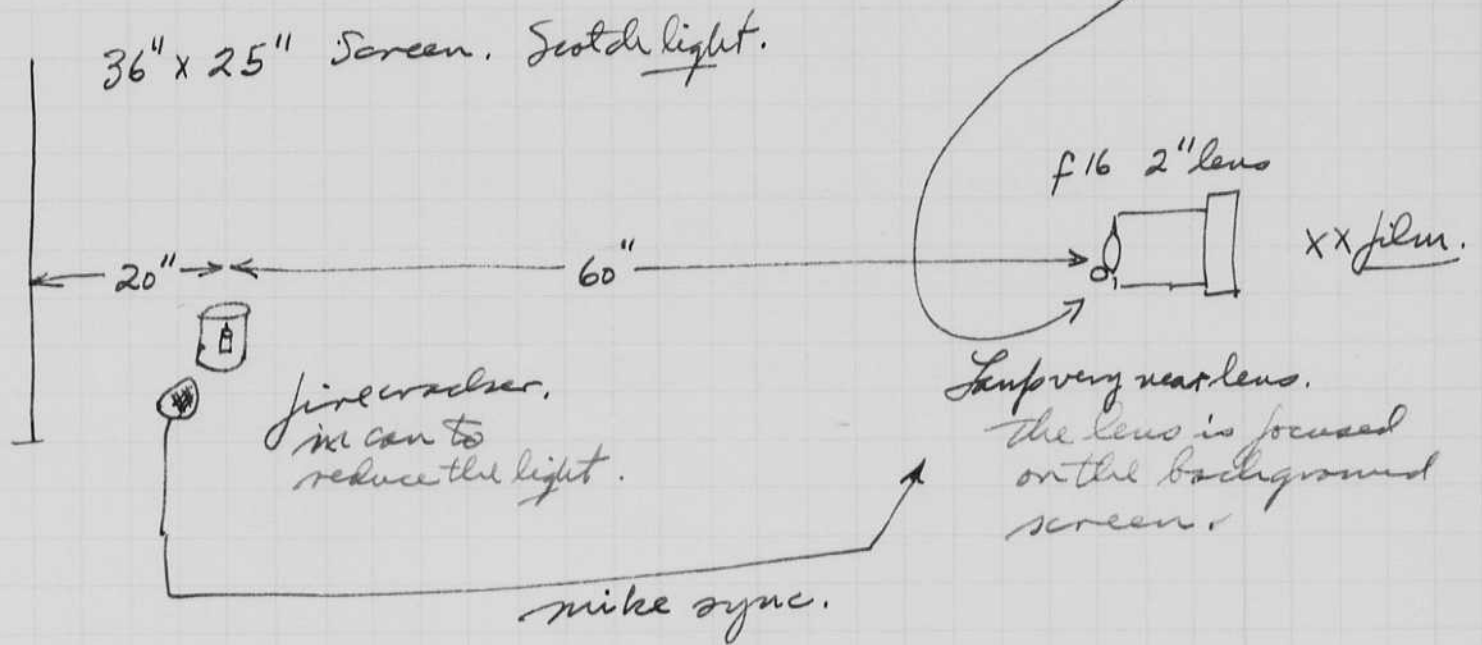 36" x 25" Screen. Scotch light.
f 16 2" lens
xx film.
20"
60"
firecracker.
in can to
reduce the light.
Lamp very near lens.
The lens is focused
on the background
screen.
mike sync.